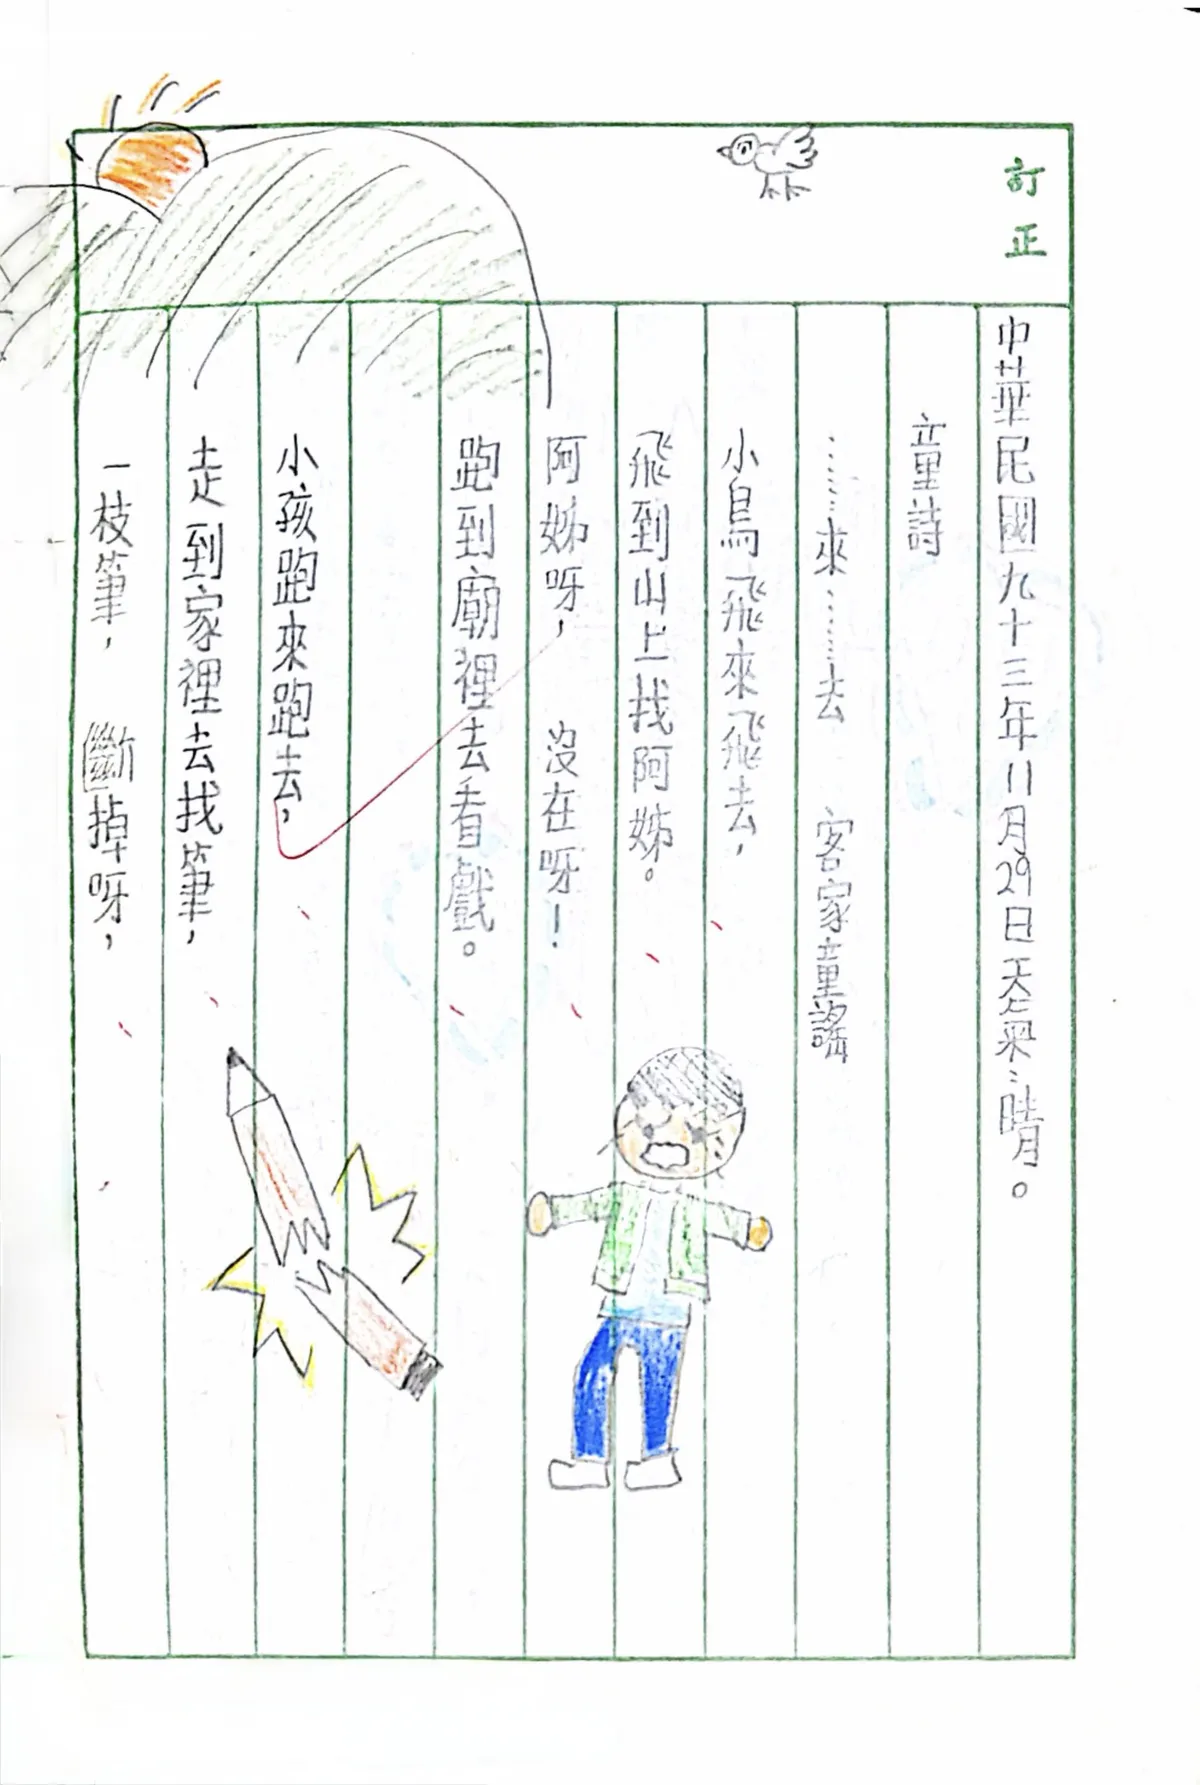 訂正
中華民國九十三年11月29日天氣：晴。
童詩
……來……去 客家童謠
小鳥飛來飛去，
飛到山上找阿姊。
阿姊呀， 沒在呀！
跑到廟裡去看戲。
小孩跑來跑去，
走到家裡去找筆，
一枝筆， 斷掉呀，